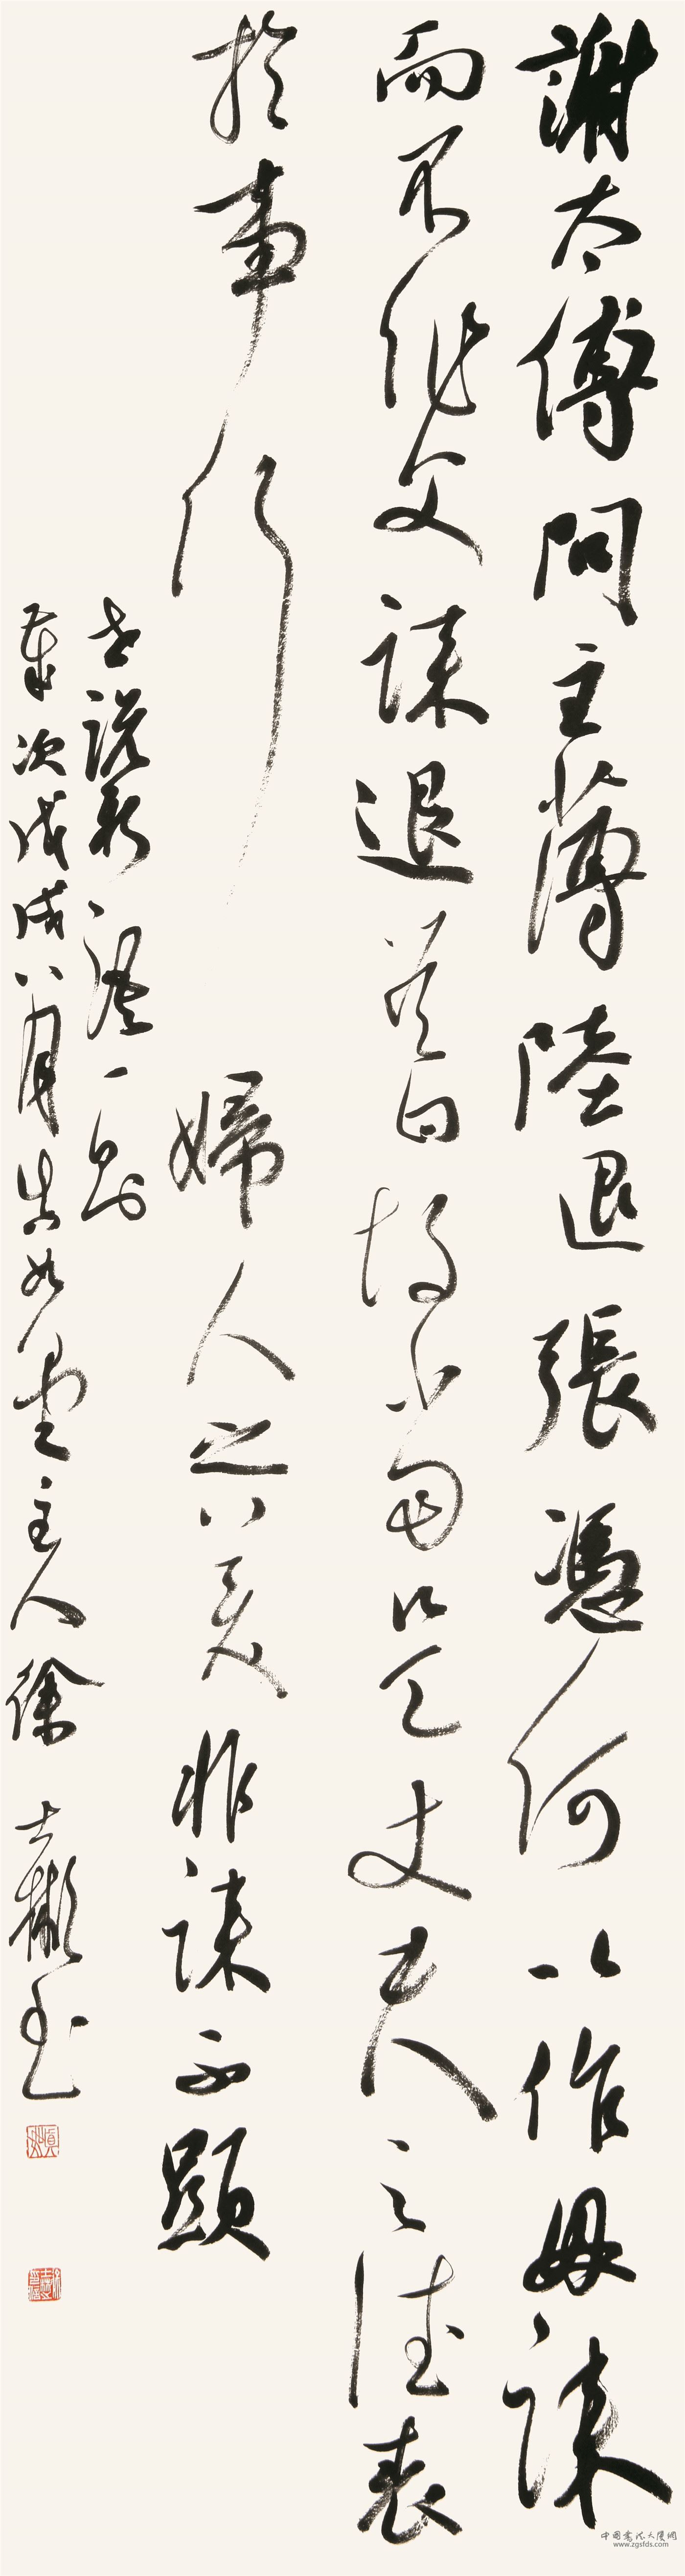 謝太傅問主薄陸退張憑何以作母誄
而不作父誄退答曰故當是丈夫之德表
於事行婦人之美非誄不顯
世說新語一則
歲次戊戌八月真如堂主人徐書
中國書法大廈網
www.zgsfds.com